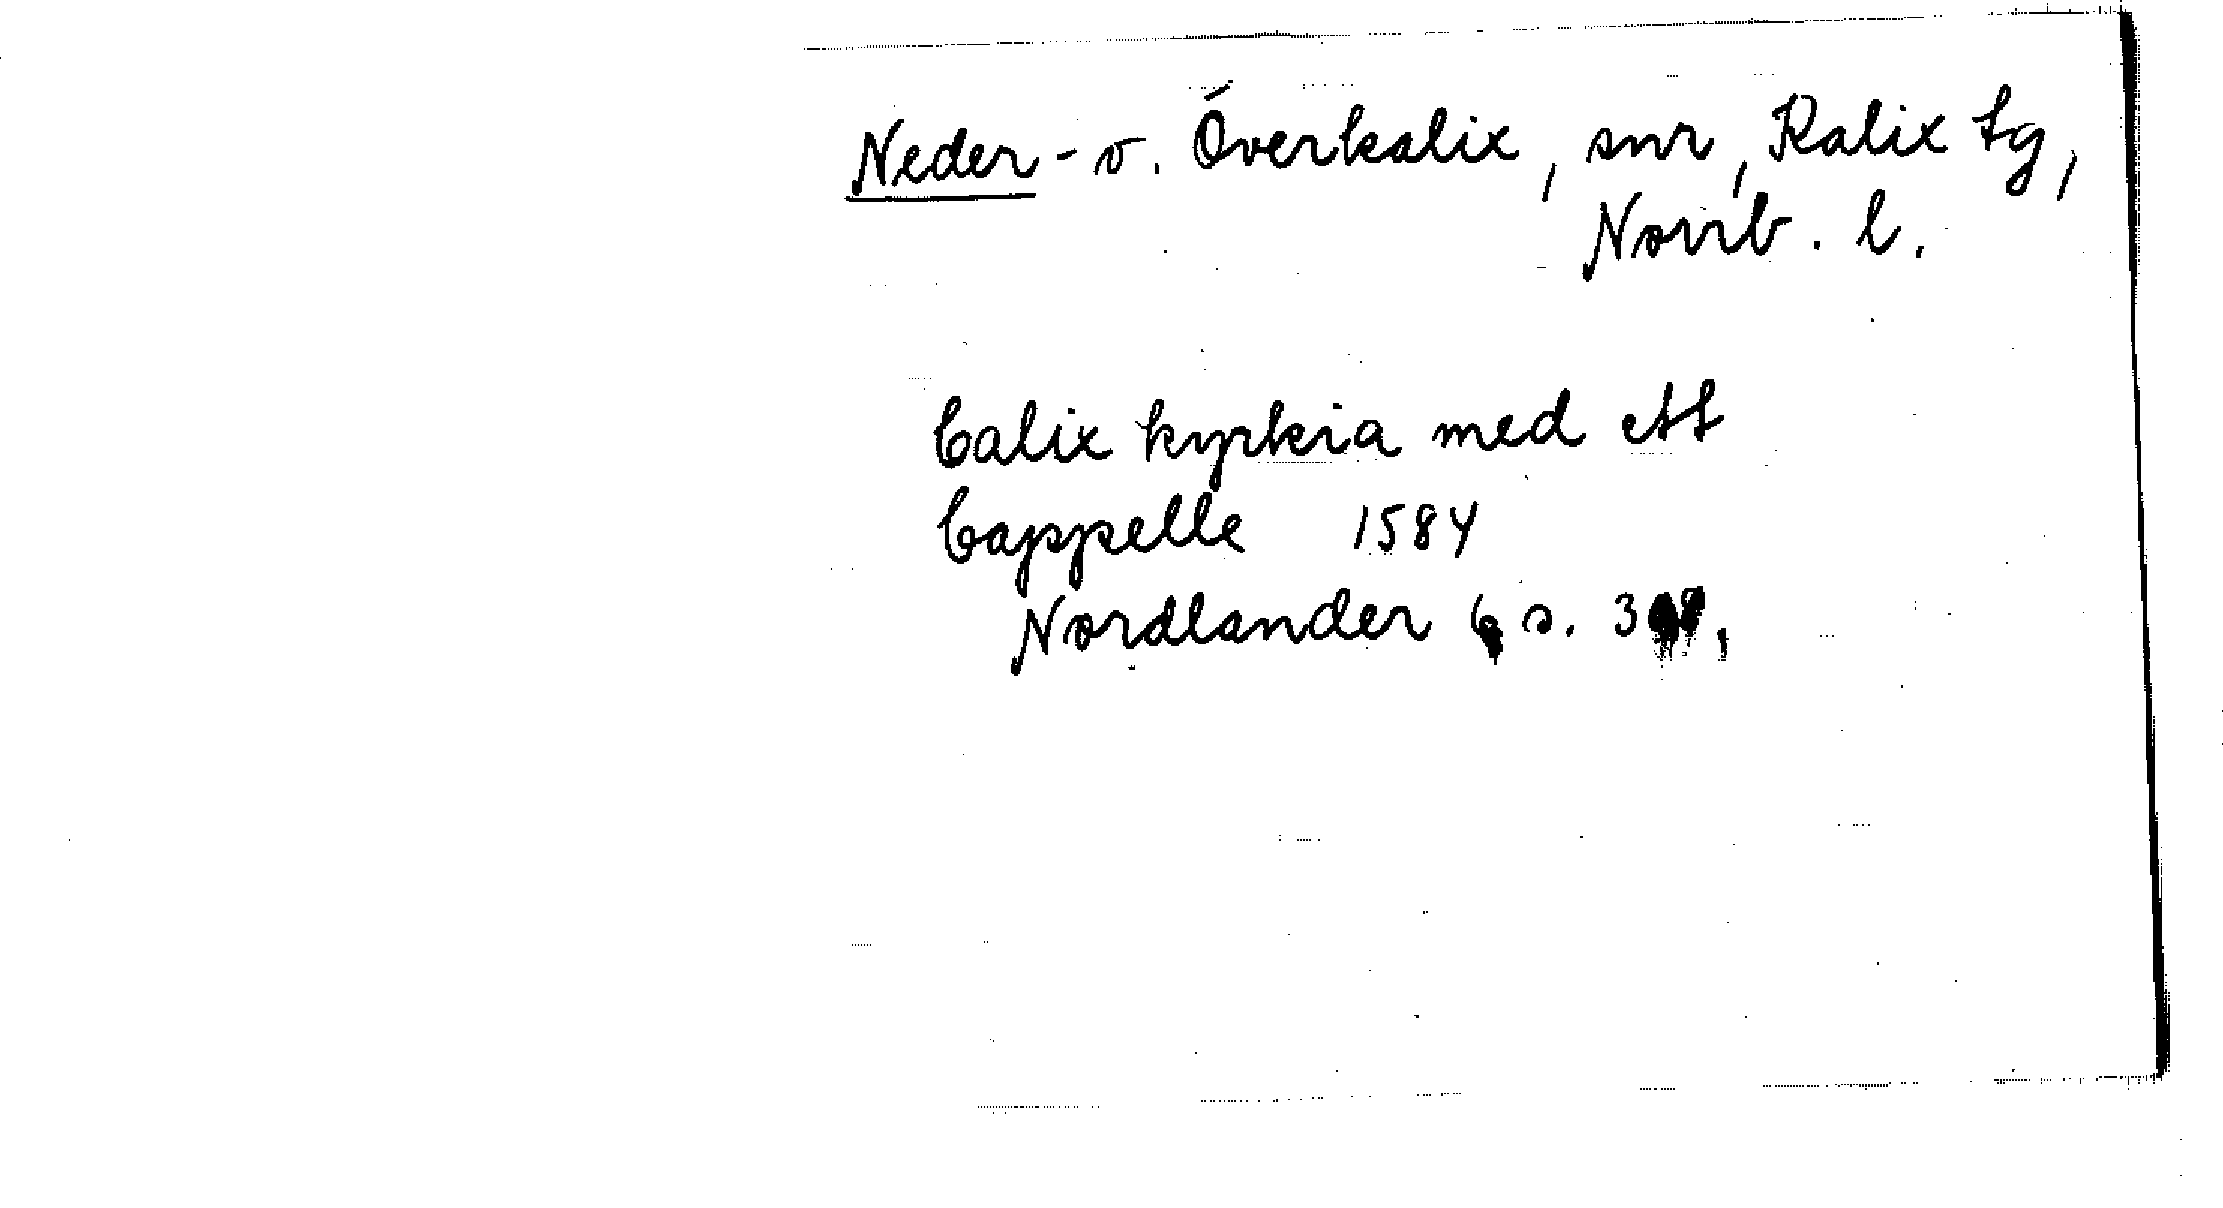 Neder- o. Överkalix, snr, Kalix tg,
Norrb. l.
Calix kyrkia med ett
Cappelle 1584
Nordlander 6 s.